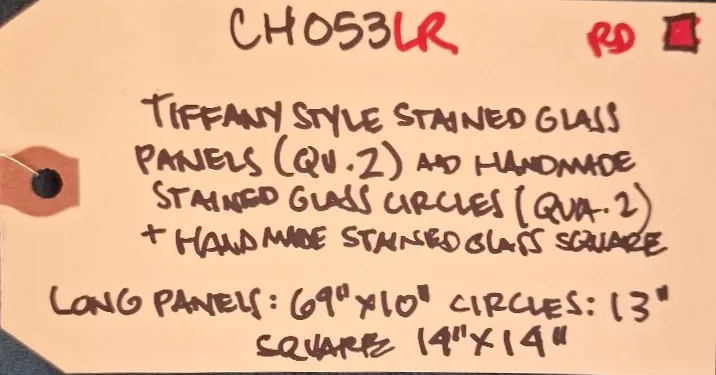 CH053LR RD
TIFFANY STYLE STAINED GLASS
PANELS (QU.2) AND HANDMADE
STAINED GLASS CIRCLES (QUA.2)
+ HANDMADE STAINED GLASS SQUARE
LONG PANELS: 69"X10" CIRCLES: 13"
SQUARE 14"X14"